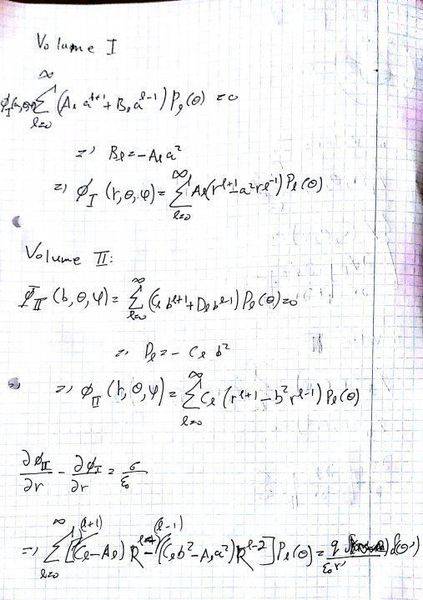 Volume I
ϕ_I(a,θ,φ)=∑_{l=0}^{∞} (A_l a^{l+1} + B_l a^{l-1}) P_l(θ) = 0
=> B_l = -A_l a^2
=> ϕ_I (r,θ,φ) = ∑_{l=0}^{∞} A_l (r^{l+1} - a^2 r^{l-1}) P_l(θ)
Volume II:
Φ_II (b,θ,φ) = ∑_{l=0}^{∞} (C_l b^{l+1} + D_l b^{l-1}) P_l(θ) = 0
=> D_l = - C_l b^2
=> ϕ_II (r,θ,φ) = ∑_{l=0}^{∞} C_l (r^{l+1} - b^2 r^{l-1}) P_l(θ)
∂ϕ_II/∂r - ∂ϕ_I/∂r = σ/ε_0
=> ∑_{l=0}^{∞} [(l+1)(C_l - A_l) R^l - (l-1)(C_l b^2 - A_l a^2) R^{l-2}] P_l(θ) = q/(ε_0 r') δ(θ')